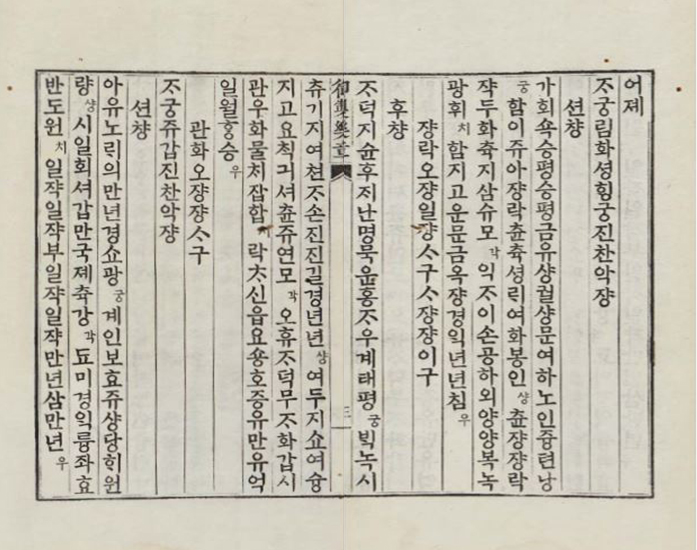 어졔
ᄌᆞ궁림화셩ᄒᆡᆼ궁진찬악쟝
션챵
가회쇽승평승평금유샹궐샹문여하노인즁련낭
궁 함이쥬아쟝락츈츅셩리여화봉인 샹 츈쟝쟝락
쟉두화츅지삼슈모 각 익ᄌᆞ이손공하외양양복녹
광휘 치 함지고운문금옥쟝경익년년침 우
쟝락오쟝일쟝ᄉᆞ구ᄉᆞ쟝쟝이구
후챵
ᄌᆞ덕지슌후지난명목윤홍ᄌᆞ우계태평 궁 빅녹시
御製樂章 三
츄기지여쳔ᄌᆞ손진진길경년년 샹 여두지쇼여슝
지고요칙거셔츈쥬연모 각 오휴ᄌᆞ덕무ᄌᆞ화갑시
관우화믈치잡합 락ᄎᆞ신읍요숑호즁유만유억
일월ᄒᆞᆼ승 우
관화오쟝쟝ᄉᆞ구
ᄌᆞ궁쥬갑진찬악쟝
션챵
아유노리의만년경쇼광 궁 계인보효쥬샹당히원
량 샹 시일회셔갑만국졔츅강 각 됴미경익륭좌효
반도원 치 일쟉일쟉부일쟉일쟉만년삼만년 우